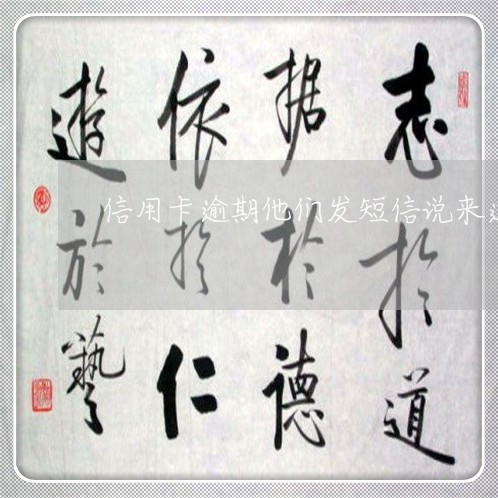 志於道
据於德
依於仁
遊於藝
信用卡逾期他们发短信说来